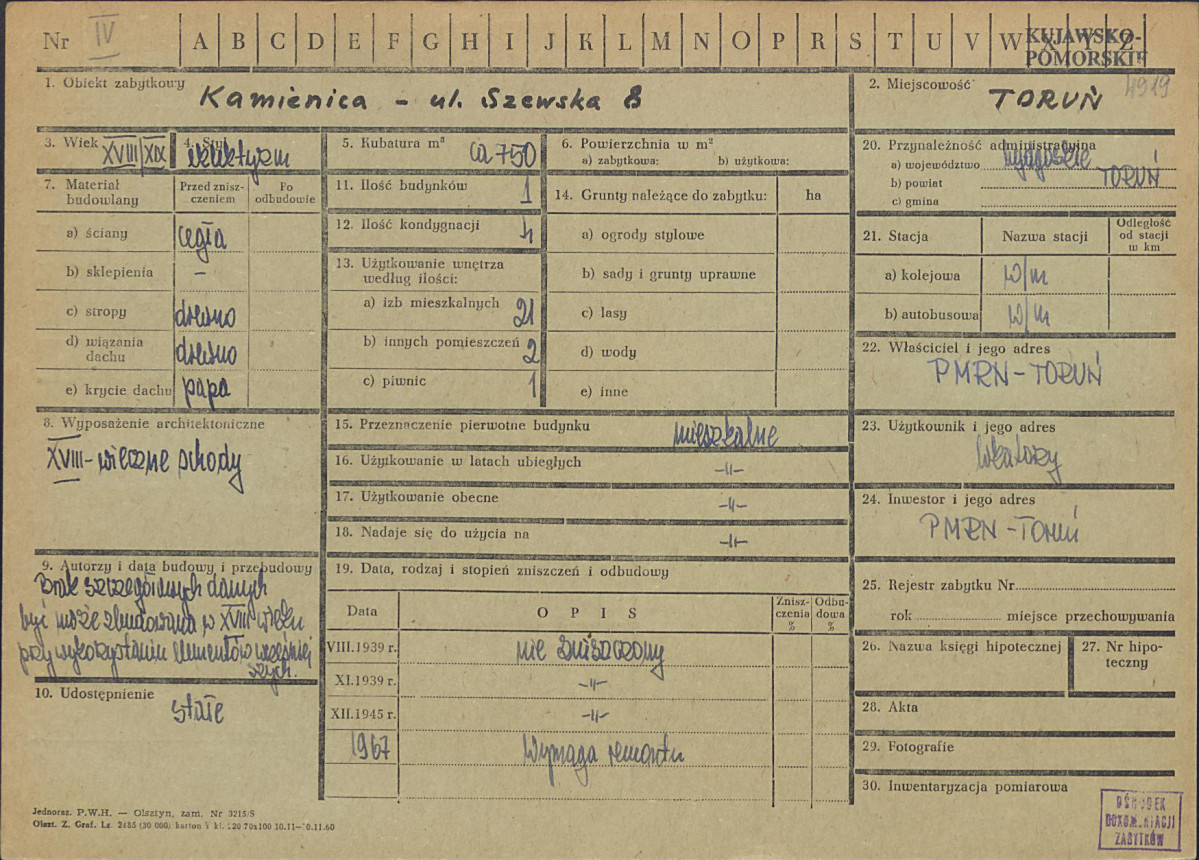 Nr IV A B C D E F G H I J K L M N O P R S T U V W X Y Z
KUJAWSKO-
POMORSKIE
4919
1. Obiekt zabytkowy
Kamienica - ul. Szewska 8
2. Miejscowość
TORUŃ
3. Wiek XVIII/XIX
4. Styl eklektyzm
5. Kubatura m³ ca 750
6. Powierzchnia w m²
a) zabytkowa: b) użytkowa:
7. Materiał budowlany
Przed zniszczeniem
Po odbudowie
a) ściany cegła
b) sklepienia –
c) stropy drewno
d) wiązania dachu drewno
e) krycie dachu papa
8. Wyposażenie architektoniczne
XVIII-wieczne schody
9. Autorzy i data budowy i przebudowy
Brak szczegółowych danych
być może zbudowana w XVIII wieku
przy wykorzystaniu elementów wcześniej
szych.
10. Udostępnienie
stałe
11. Ilość budynków 1
12. Ilość kondygnacji 4
13. Użytkowanie wnętrza
według ilości:
a) izb mieszkalnych 21
b) innych pomieszczeń 2
c) piwnic 1
14. Grunty należące do zabytku: ha
a) ogrody stylowe
b) sady i grunty uprawne
c) lasy
d) wody
e) inne
15. Przeznaczenie pierwotne budynku mieszkalne
16. Użytkowanie w latach ubiegłych -"-
17. Użytkowanie obecne -"-
18. Nadaje się do użycia na -"-
19. Data, rodzaj i stopień zniszczeń i odbudowy
Data OPIS Zniszczenia % Odbudowa %
VIII.1939 r. nie zniszczony
XI.1939 r. -"-
XII.1945 r. -"-
1967 Wymaga remontu
20. Przynależność administracyjna
a) województwo bydgoskie
b) powiat TORUŃ
c) gmina
21. Stacja Nazwa stacji
Odległość
od stacji
w km
a) kolejowa w/m
b) autobusowa w/m
22. Właściciel i jego adres
PMRN-TORUŃ
23. Użytkownik i jego adres
lokatorzy
24. Inwestor i jego adres
PMRN-Toruń
25. Rejestr zabytku Nr
rok miejsce przechowywania
26. Nazwa księgi hipotecznej
27. Nr hipoteczny
28. Akta
29. Fotografie
30. Inwentaryzacja pomiarowa
OŚRODEK
DOKUMENTACJI
ZABYTKÓW
Jednoraz. P.W.H. — Olsztyn, zam. Nr 3215/S
Olszt. Z. Graf. Lz. 2455 (30 000) karton